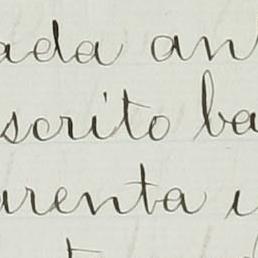 ada an
scrito ba
arenta